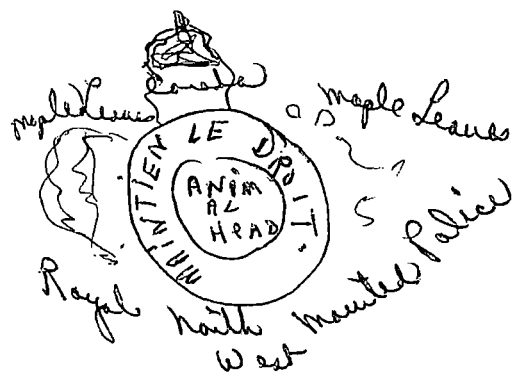 Canada
Maple Leaves
Maple Leaves
MAINTIEN LE DROIT
ANIM
AL
HEAD
Royal North
West
Mounted Police